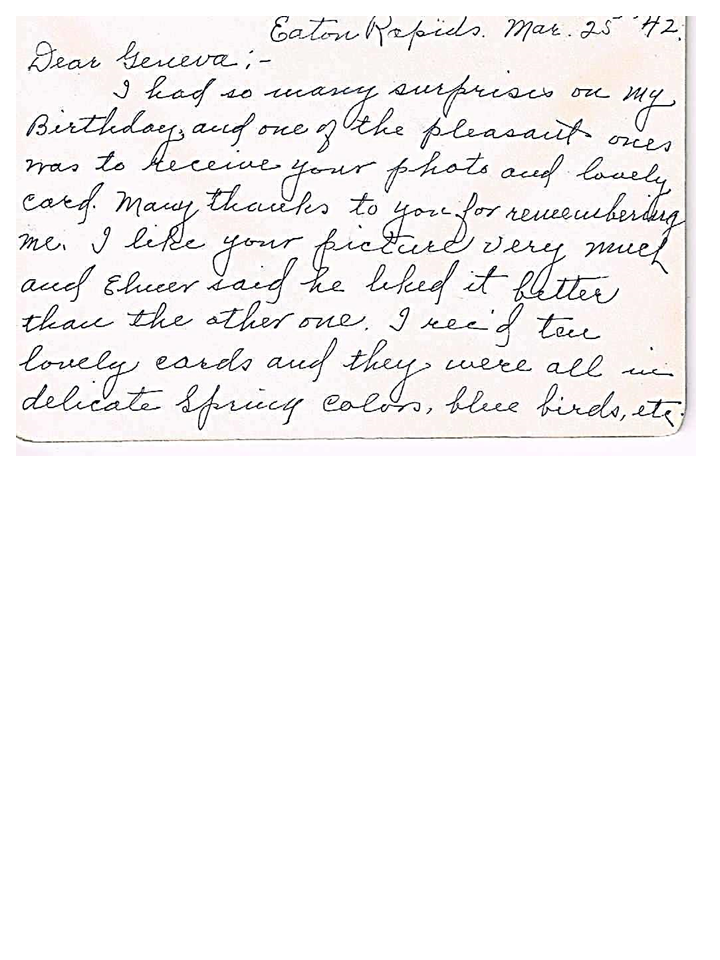 Eaton Rapids. Mar. 25 '42.
Dear Geneva;-
I had so many surprises on my
Birthday, and one of the pleasant ones
was to receive your photo and lovely
card. Many thanks to you for remembering
me. I like your picture very much
and Elmer said he liked it better
than the other one. I rec'd ten
lovely cards and they were all in
delicate Spring colors, blue birds, etc.